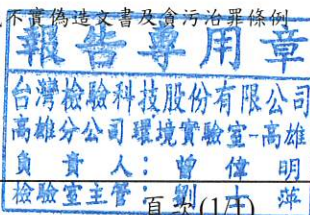 不實偽造文書及貪污治罪條例
報告專用章
台灣檢驗科技股份有限公司
高雄分公司環境實驗室-高雄
負責人：曾偉明
檢驗室主管：劉 萍
頁次(1/1)